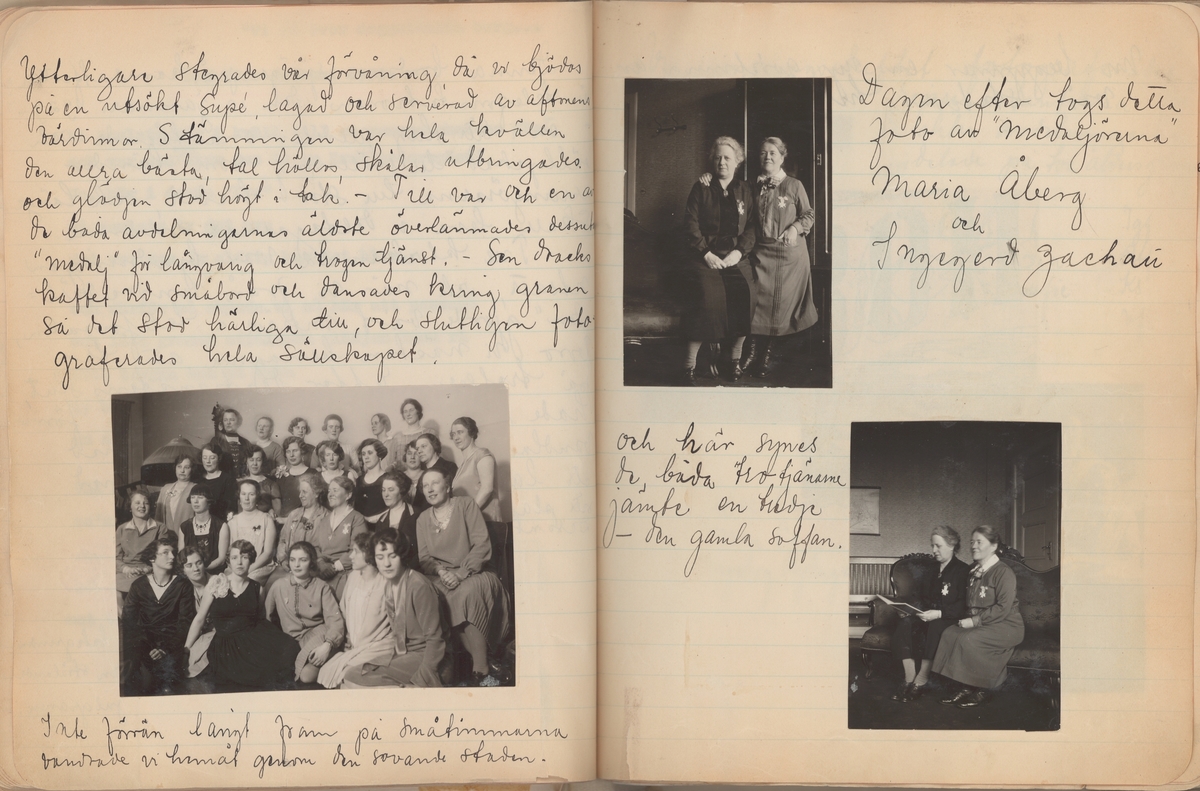 Ytterligare stegrades vår förvåning då vi bjödos
på en utsökt supé, lagad och serverad av aftonens
värdinnor. Stämningen var hela kvällen
den allra bästa, tal höllos, skålar utbringades
och glädjen stod högt i tak. – Till var och en a
de båda avdelningarnas äldste överlämnades dessut
"medalj" för långvarig och trogen tjänst. – Sen dracks
kaffet vid småbord och dansades kring granen
så det stod härliga till, och slutligen foto-
graferades hela sällskapet.
Inte förrän långt fram på småtimmarna
vandrade vi hemåt genom den sovande staden.
Dagen efter togs detta
foto av "medaljörerna"
Maria Åberg
och
Ingegerd Zachau
och här synes
de båda trotjänarne
jämte en tredje
– den gamla soffan.